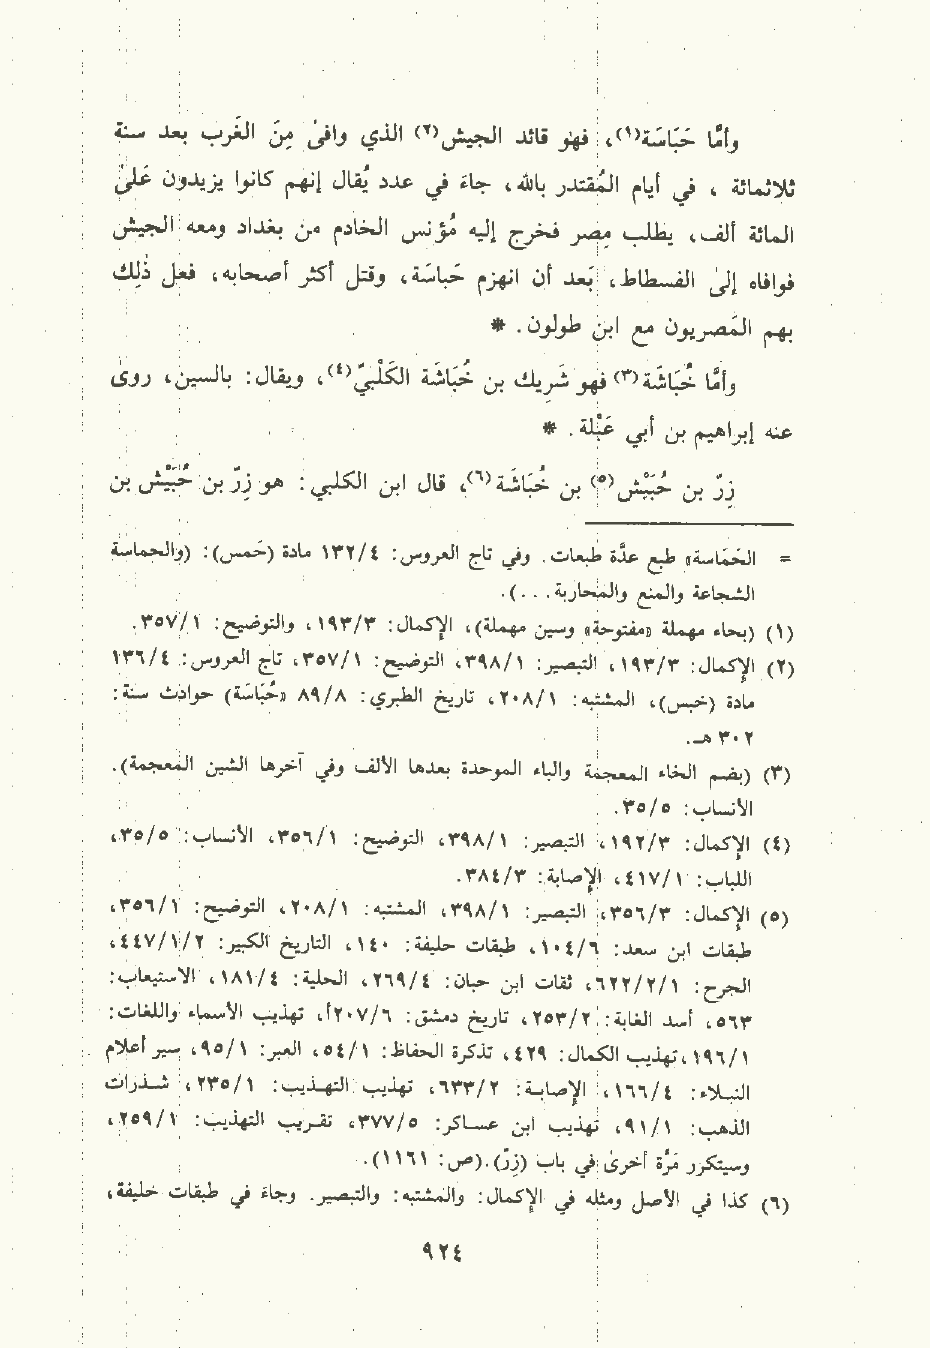 وأمَّا حَبَاسَة(١)، فهو قائد الجيش(٢) الذي وافىٰ مِنَ الغَرب بعد سنة
ثلاثمائة ، في أيام المُقتدر بالله، جاءَ في عدد يُقال إنهم كانوا يزيدون عَلىٰ
المائة ألف، يطلب مِصر فخرج إليه مُؤنس الخادم من بغداد ومعه الجيش
فوافاه إلىٰ الفسطاط، بَعد أن انهزم حَباسَة، وقتل أكثر أصحابه، فعل ذٰلِك
بهم المَصريون مع ابن طولون. *
وأمَّا خُبَاشَة(٣) فهو شَرِيك بن خُبَاشَة الكَلْبيّ(٤)، ويقال: بالسين، روىٰ
عنه إبراهيم بن أبي عَبْلة. *
زِرّ بن حُبَيْش(٥) بن خُبَاشَة(٦)، قال ابن الكلبي: هو زِرّ بن حُبَيْش بن
= الحَمَاسة» طبع عدَّة طبعات. وفي تاج العروس: ١٣٢/٤ مادة (حَمس): (والحماسة
الشجاعة والمنع والمحاربة...).
(١) (بحاء مهملة «مفتوحة» وسين مهملة)، الإكمال: ١٩٣/٣، والتوضيح: ٣٥٧/١.
(٢) الإكمال: ١٩٣/٣، التبصير: ٣٩٨/١، التوضيح: ٣٥٧/١، تاج العروس: ١٣٦/٤
مادة (خبس)، المشتبه: ٢٠٨/١، تاريخ الطبري: ٨٩/٨ «حُبَاسَة) حوادث سنة:
٣٠٢ هـ.
(٣) (بضم الخاء المعجمة والباء الموحدة بعدها الألف وفي آخرها الشين المعجمة).
الأنساب: ٣٥/٥.
(٤) الإكمال: ١٩٢/٣، التبصير: ٣٩٨/١، التوضيح: ٣٥٦/١، الأنساب: ٣٥/٥،
اللباب: ٤١٧/١، الإصابة: ٣٨٤/٣.
(٥) الإكمال: ٣٥٦/٣، التبصير: ٣٩٨/١، المشتبه: ٢٠٨/١، التوضيح: ٣٥٦/١،
طبقات ابن سعد: ١٠٤/٦، طبقات خليفة: ١٤٠، التاريخ الكبير: ٤٤٧/١/٢،
الجرح: ٦٢٢/٢/١، ثقات ابن حبان: ٢٦٩/٤، الحلية: ١٨١/٤، الاستيعاب:
٥٦٣، أسد الغابة: ٢٥٣/٢، تاريخ دمشق: ٢٠٧/٦أ، تهذيب الأسماء واللغات:
١٩٦/١، تهذيب الكمال: ٤٢٩، تذكرة الحفاظ: ٥٤/١، العبر: ٩٥/١، سير أعلام
النبلاء: ١٦٦/٤، الإصابة: ٦٣٣/٢، تهذيب التهذيب: ٢٣٥/١، شذرات
الذهب: ٩١/١، تهذيب ابن عساكر: ٣٧٧/٥، تقريب التهذيب: ٢٥٩/١،
وسيتكرر مَرَّة أخرىٰ في باب (زِرّ).(ص: ١١٦١).
(٦) كذا في الأصل ومثله في الإكمال: والمشتبه: والتبصير. وجاءَ في طبقات خليفة،
٩٢٤